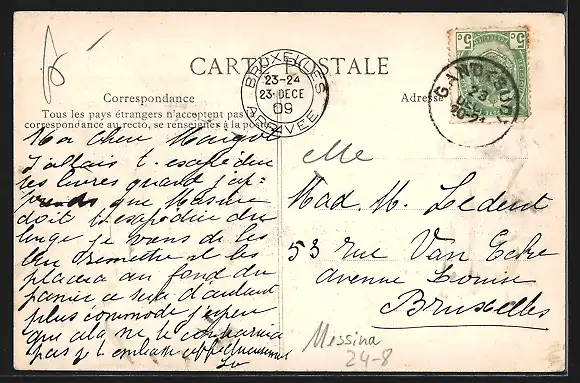 CARTE POSTALE
Correspondance
Tous les pays étrangers n'acceptent pas la
correspondance au recto, se renseigner à la poste
Adresse
BRUXELLES
23-24
23 DECE
09
ARRIVEE
5c 5c
GAND-SUD
23
DEC
Ma chère
J'allais t'
les livres quand j'ap-
que Maman
doit t'expédier du
linge je viens de les
lui remettre et les
placera au fond du
panier ce sera d'autant
plus commode j'espère
que cela ne te
pas je t'embrasse
Mlle
Mad. M. Ledent
53 rue Van Eeke
avenue Louise
Bruxelles
Messina
24-8